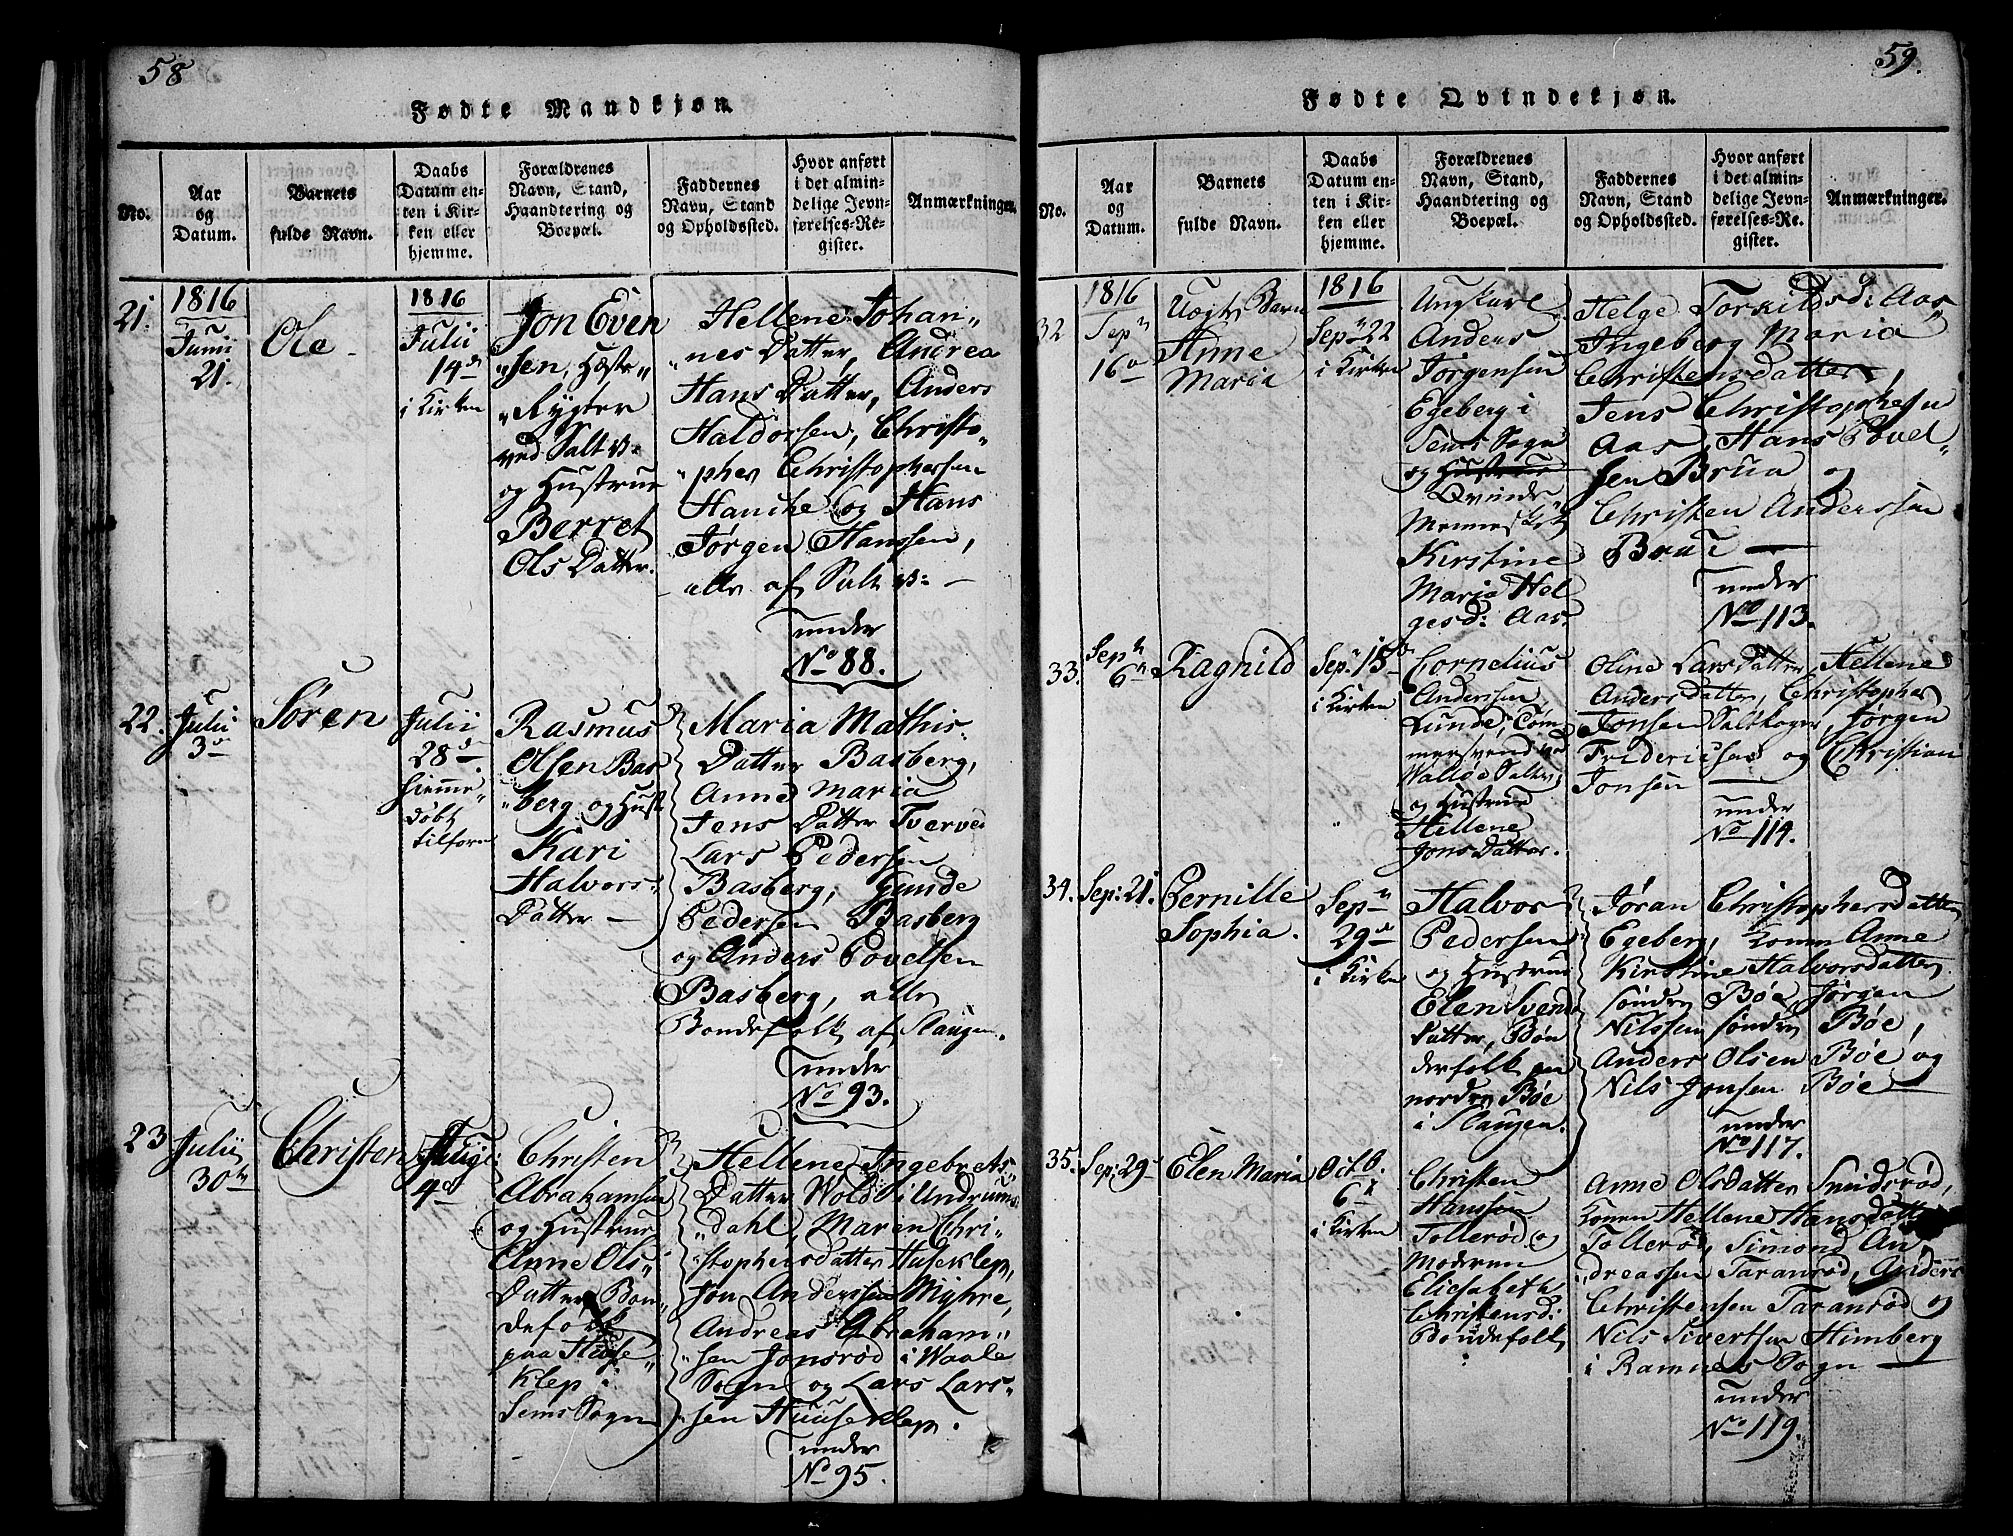 58
Fødte Mandkjøn.
No.
Aar
og
Datum.
Barnets
fulde Navn.
Daabs
Datum en-
ten i Kir-
ken eller
hjemme.
Forældrenes
Navn, Stand,
Haandtering og
Boepæl.
Faddernes
Navn, Stand
og Opholdssted.
Hvor anført
i det almin-
delige Jevn-
førelses-Re-
gister.
Anmærkninger.
21.
1816
Juni
21.
Ole
1816
Julii
14de
i Kirken
Jon Even
"sen, Hæste"
"Rygter
ved Salt v:
og Hustrue
Berret
Ols Datter.
Hellene Johan"
"nes Datter, Andrea
Hans Datter, Anders
Haldorsen, Christo"
"pher Christophersen
Hauche og Hans
Jørgen Hanssen,
alle af Salt v: —
under
No 88.
22.
Julii
3de
Søren
Julii
28de
hiemme"
døbt
tilforn
Rasmus
Olsen Bas
"berg og Hust
Kari
Halvors"
Datter —
Maria Mathis
Datter Basberg,
Anne Maria
Jens Datter Tverved
Lars Pedersen
Basberg, Gunde
Pedersen Basberg
og Anders Povelsen
Basberg, alle
Bondefolk af Slaugen.
under
No 93.
23
Julii
30te
Christen
4de
Christen
Abrahamsen
og Hustrue
Anne Ols"
Datter Bon"
defolk
paa Huse"
Klep i
Sems Sogn
Hellene Ingebrets
Datter Wold i Undrums
"dahl, Maren Chri"
"stophersdatter Huseklep,
Jon Anderssen Myhre,
Andreas Abraham"
"sen Jonsrød i Waale
Sogn og Lars Lars"
"sen Huuseklep.
under
No 95.
59.
Fødte Qvindekjøn.
No.
Aar
og
Datum.
Barnets
fulde Navn.
Daabs
Datum en-
ten i Kir-
ken eller
hjemme.
Forældrenes
Navn, Stand,
Haandtering og
Boepæl.
Faddernes
Navn, Stand
og Opholdssted.
Hvor anført
i det almin-
delige Jevn-
førelses-Re-
gister.
Anmærkninger.
32
1816
Sepr
16de
Uægte Barn
Anne
Maria
1816
Sepr 22
i Kirken
Ungkarl
Anders
Jørgensen
Egeberg i
Sems Sogn
og Hustrue
Qvinde
Mennesket
Kirstine
Maria Hel
gesd: Aas.
Helge Torkildsd: Aas
Ingeborg Maria
Christensdatter,
Jens Christophersen
Aas, Hans Povel"
sen Brua og
Christen Anderssen
Brua —
under
No 113.
33.
Sepr
6te
Ragnild
Sepr 15de
i Kirken
Cornelius
Anderssen
Lunde, Tøm
mersvend ved
Walløe Saltv:
og Hustrue
Hellene
Jons Datter.
Oline Lars Datter, Hellene
Anders Datter, Christopher
Jonsen Saltkoger, Jørgen
Fridrichsen og Christian
Jonsen —
under
No 114.
34.
Sep: 21.
Pernille
Sophia.
Sepr
29de
i Kirken
Halvor
Pedersen
og Hustrue
Elen Svend
datter, Bøn
derfolk paa
nordre Bøe
i Slaugen.
Jøran Christophersdatter
Egeberg, Konen Anne
Kirstine Halvorsdatter
søndre Bøe, Jørgen
Nilssen søndre Bøe,
Anders Olsen Bøe, og
Nils Jonsen Bøe —
under
No 117.
35.
Sep: 29
Elen Maria
Octo.
6te
i Kirken
Christen
Hanssen
Tollerød og
Moderen
Elisabeth
Christensd:
Bondefolk
Anne Olsdatter Smidsrød,
Konen Hellene Hansdatter
Tollerød, Simond An"
"dreassen Taranrød, Anders
Christensen Taranrød og
Nils Sivertsen Himberg
i Ramnes Sogn —
under
No 119.